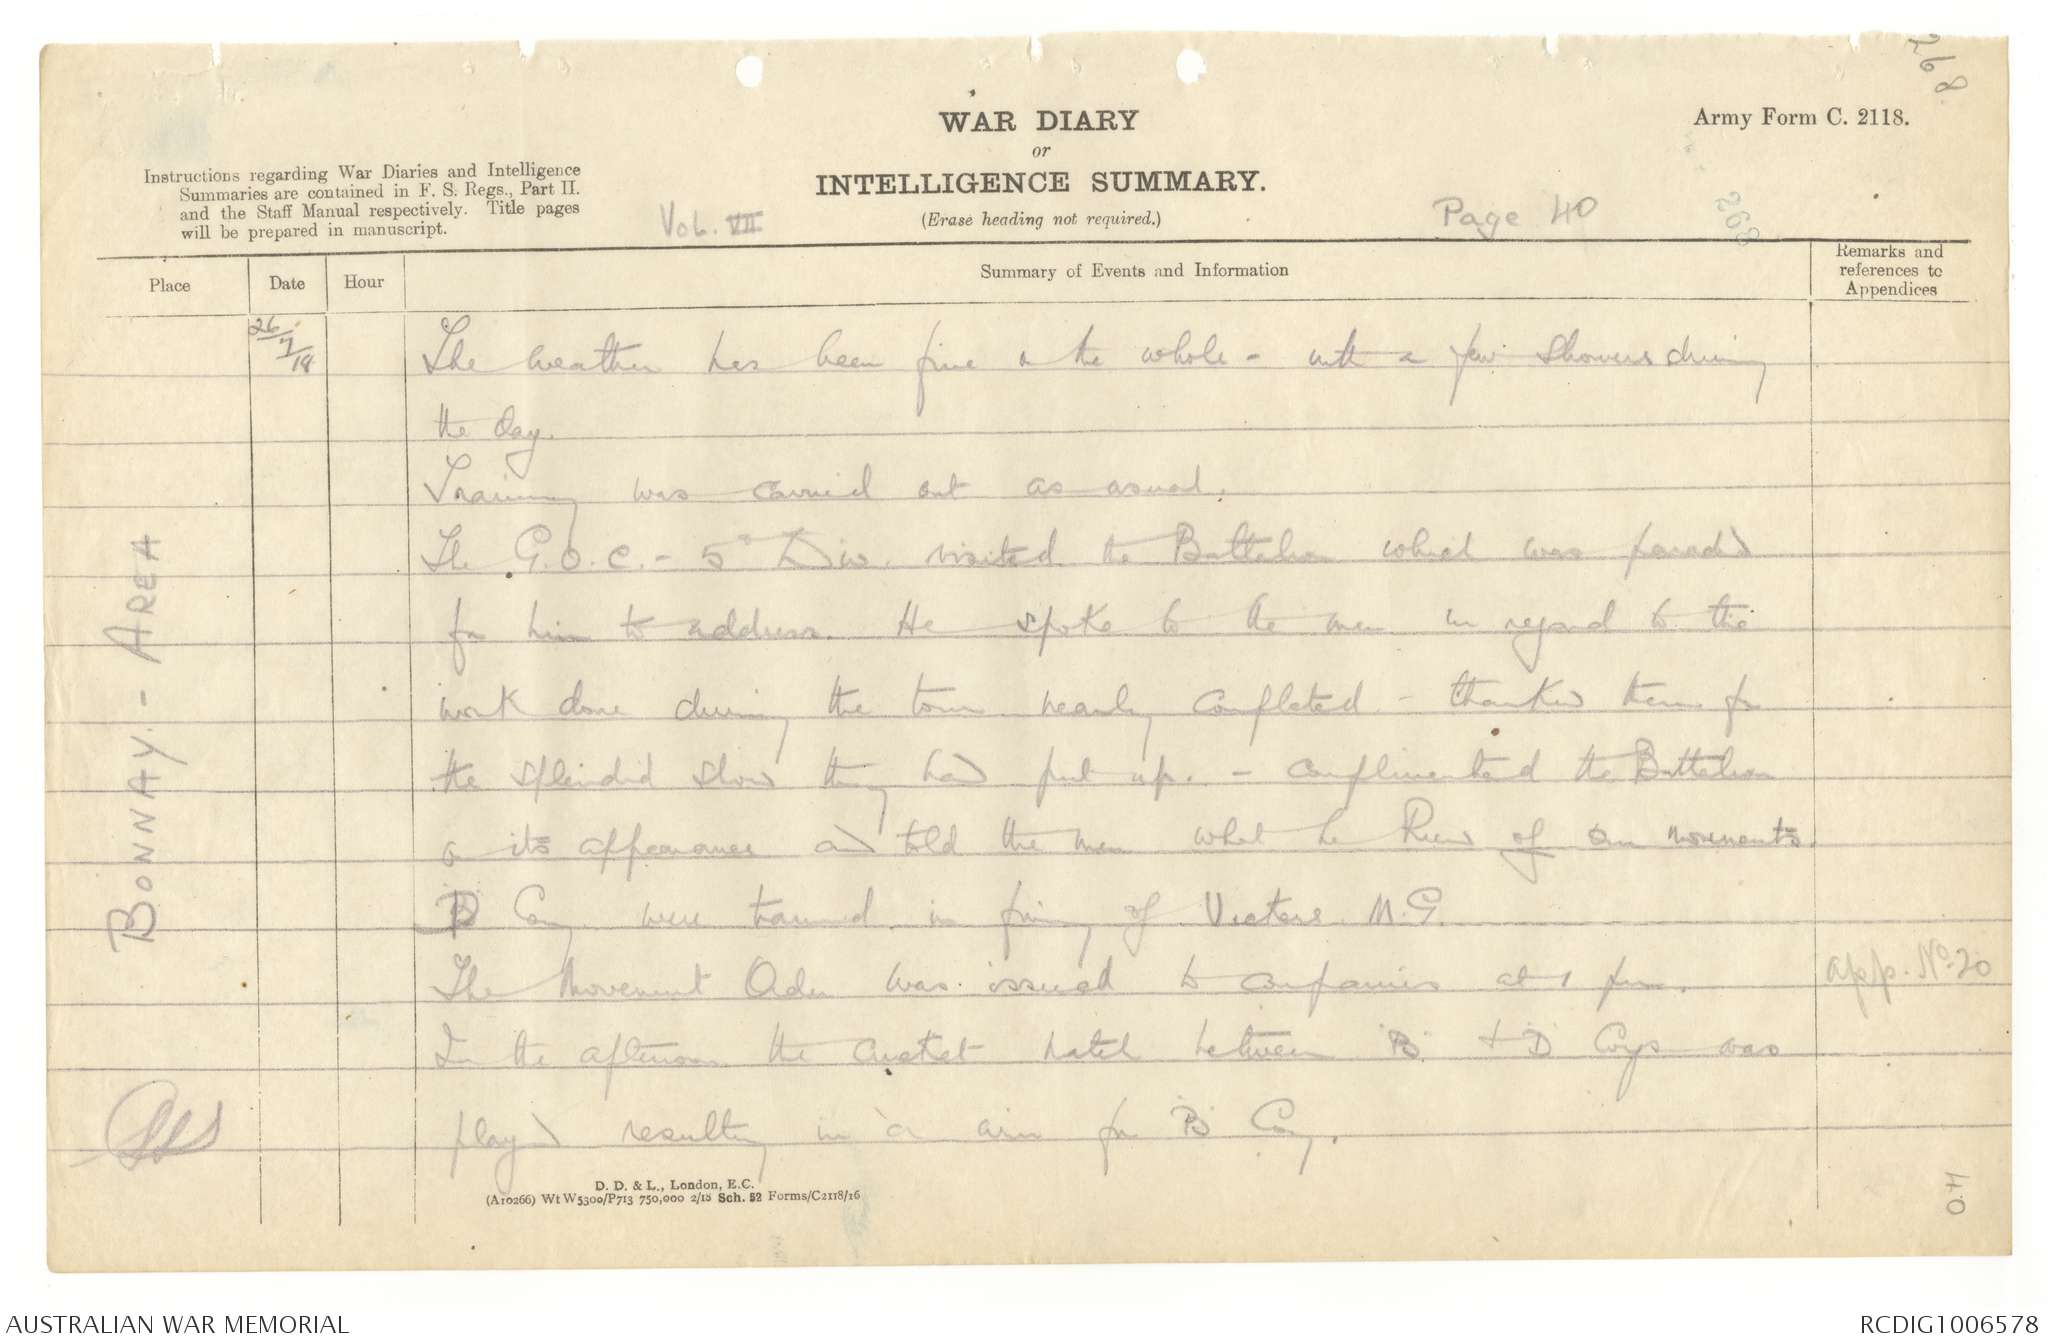 268
WAR DIARY
or
INTELLIGENCE SUMMARY.
(Erase heading not required.)
Army Form C. 2118.
Instructions regarding War Diaries and Intelligence
Summaries are contained in F. S. Regs., Part II.
and the Staff Manual respectively. Title pages
will be prepared in manuscript.
Vol. VII
Page 40
268
Place
Date
Hour
Summary of Events and Information
Remarks and
references to
Appendices
BONNAY - AREA
26/7/18
The weather has been fine on the whole - with a few showers during
the day.
Training was carried out as usual.
The G.O.C. - 5th Div. visited the Battalion which was paraded
for him to address. He spoke to the men in regard to the
work done during the tour nearly completed - thanked them for
the splendid show they had put up. - complimented the Battalion
on its appearance and told the men what he knew of our movements.
D Coy were trained in firing of Vickers M.G.
The Movement Order was issued to companies at 1 pm.
App. No. 20
In the afternoon the cricket match between 'B' & 'D' Coys was
played resulting in a win for 'B' Coy.
D. D. & L., London, E.C.
(A10266) Wt W5300/P713 750,000 2/18 Sch. 52 Forms/C2118/16
40
AUSTRALIAN WAR MEMORIAL
RCDIG1006578